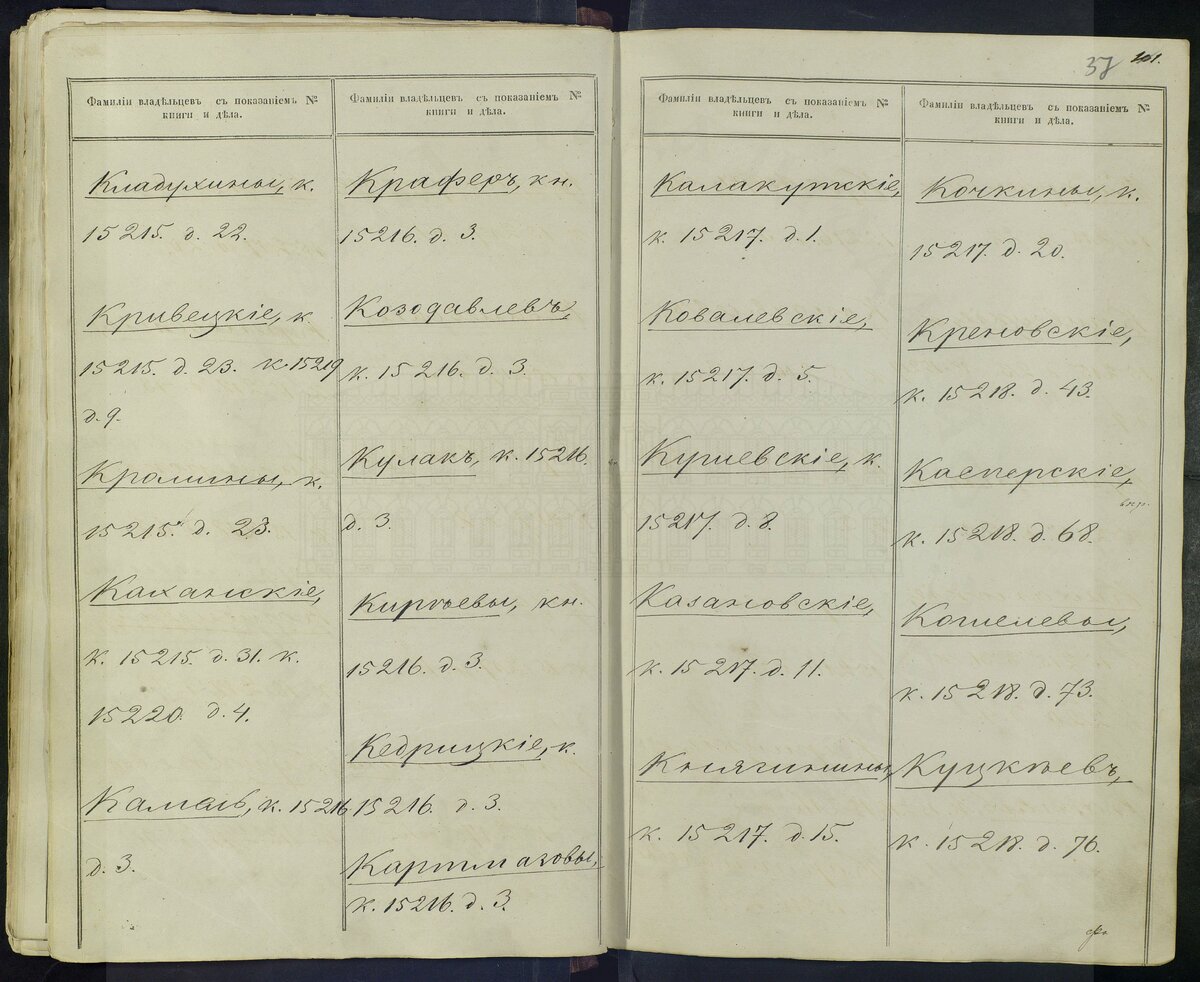 Фамиліи владѣльцевъ съ показаніемъ №
книги и дѣла.
Кладухины, к.
15215. д. 22.
Кривецкіе, к.
15215. д. 23. к. 15219
д. 9.
Кромины, к.
15215. д. 23.
Каханскіе,
к. 15215. д. 31. к.
15220. д. 4.
Камаль, к. 15216
д. 3.
Фамиліи владѣльцевъ съ показаніемъ №
книги и дѣла.
Краферъ, кн.
15216. д. 3.
Козодавлевъ,
к. 15216. д. 3.
Кулакъ, к. 15216.
д. 3.
Киргѣевы, кн.
15216. д. 3.
Кедрицкіе, к.
15216. д. 3.
Картмазовы,
к. 15216. д. 3.
37 101.
Фамиліи владѣльцевъ съ показаніемъ №
книги и дѣла.
Калакутскіе,
к. 15217. д. 1.
Ковалевскіе,
к. 15217. д. 5.
Кушевскіе, к.
15217. д. 8.
Казановскіе,
к. 15217. д. 11.
Княгинины,
к. 15217. д. 15.
Фамиліи владѣльцевъ съ показаніемъ №
книги и дѣла.
Кочкины, к.
15217. д. 20.
Креновскіе,
к. 15218. д. 43.
Касперскіе,
к. 15218. д. 68.
Кошелевы,
к. 15218. д. 73.
Куцкѣевъ,
к. 15218. д. 76.